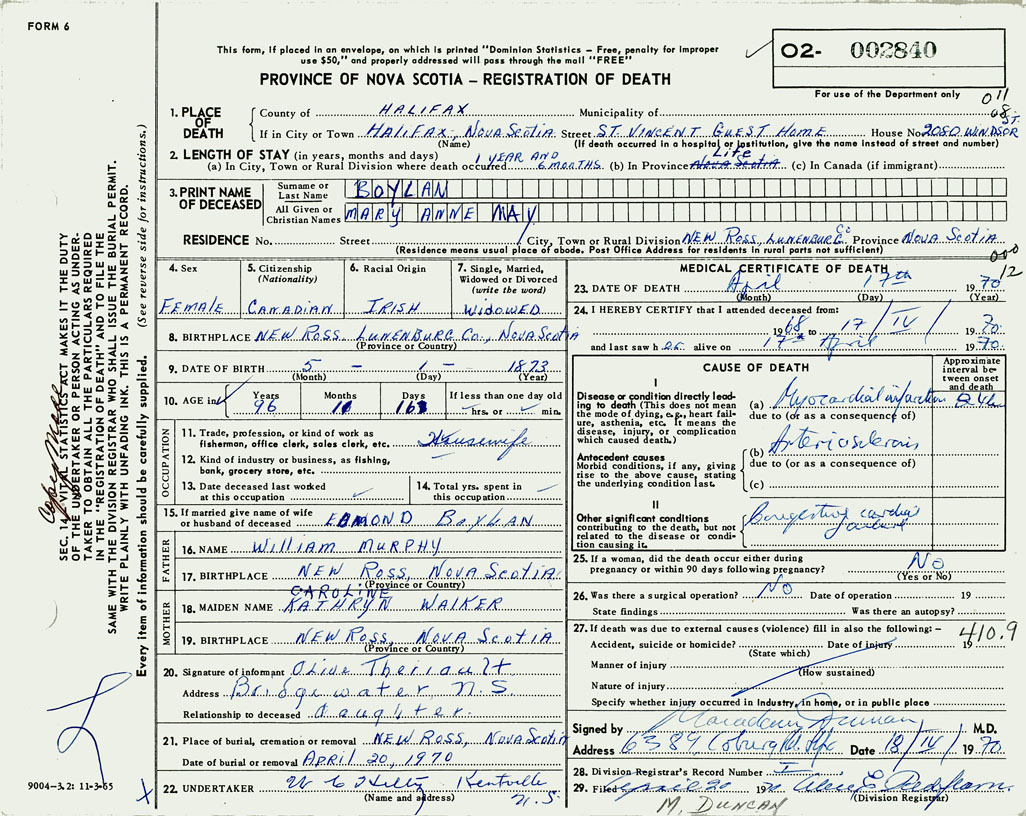 FORM 6
This form, if placed in an envelope, on which is printed "Dominion Statistics – Free, penalty for improper
use $50," and properly addressed will pass through the mail "FREE"
PROVINCE OF NOVA SCOTIA – REGISTRATION OF DEATH
O2- 002840
For use of the Department only
011
08
1. PLACE OF DEATH
County of HALIFAX Municipality of
If in City or Town HALIFAX, NOVA SCOTIA Street ST. VINCENT GUEST HOME House No. 2080 WINDSOR ST.
(Name) (If death occurred in a hospital or institution, give the name instead of street and number)
2. LENGTH OF STAY (in years, months and days)
(a) In City, Town or Rural Division where death occurred 1 YEAR AND 6 MONTHS (b) In Province Nova Scotia Life (c) In Canada (if immigrant)
3. PRINT NAME OF DECEASED
Surname or Last Name BOYLAN
All Given or Christian Names MARY ANNE MAY
RESIDENCE No. Street City, Town or Rural Division NEW ROSS, LUNENBURG Co Province NOVA SCOTIA
(Residence means usual place of abode. Post Office Address for residents in rural parts not sufficient)
000
12
4. Sex FEMALE
5. Citizenship (Nationality) CANADIAN
6. Racial Origin IRISH
7. Single, Married, Widowed or Divorced (write the word) WIDOWED
8. BIRTHPLACE NEW ROSS LUNENBURG Co., NOVA SCOTIA
(Province or Country)
9. DATE OF BIRTH 5 – 1 – 1873
(Month) (Day) (Year)
10. AGE in Years 96 Months 11 Days 16 If less than one day old hrs. or min.
OCCUPATION
11. Trade, profession, or kind of work as fisherman, office clerk, sales clerk, etc. Housewife
12. Kind of industry or business, as fishing, bank, grocery store, etc. –
13. Date deceased last worked at this occupation
14. Total yrs. spent in this occupation
15. If married give name of wife or husband of deceased EDMOND BOYLAN
FATHER
16. NAME WILLIAM MURPHY
17. BIRTHPLACE NEW ROSS, NOVA SCOTIA
(Province or Country)
MOTHER
18. MAIDEN NAME CAROLINE KATHRYN WALKER
19. BIRTHPLACE NEW ROSS, NOVA SCOTIA
(Province or Country)
20. Signature of informant Olive Theriault
Address Bridgewater N.S.
Relationship to deceased daughter.
21. Place of burial, cremation or removal NEW ROSS, NOVA SCOTIA
Date of burial or removal APRIL 20, 1970
22. UNDERTAKER Kentville N.S.
(Name and address)
MEDICAL CERTIFICATE OF DEATH
23. DATE OF DEATH April 17th 1970
(Month) (Day) (Year)
24. I HEREBY CERTIFY that I attended deceased from:
1968 to 17/IV/ 70
and last saw her alive on 17th April 1970
CAUSE OF DEATH
Approximate interval between onset and death
I
Disease or condition directly leading to death (This does not mean the mode of dying, e.g., heart failure, asthenia, etc. It means the disease, injury, or complication which caused death.)
(a) Myocardial infarction
due to (or as a consequence of)
Antecedent causes
Morbid conditions, if any, giving rise to the above cause, stating the underlying condition last.
(b) Arteriosclerosis
due to (or as a consequence of)
(c)
II
Other significant conditions contributing to the death, but not related to the disease or condition causing it.
Congestive cardiac failure
25. If a woman, did the death occur either during pregnancy or within 90 days following pregnancy? No
(Yes or No)
26. Was there a surgical operation? No Date of operation 19
State findings Was there an autopsy?
27. If death was due to external causes (violence) fill in also the following: – 410.9
Accident, suicide or homicide? Date of injury 19
(State which)
Manner of injury
(How sustained)
Nature of injury
Specify whether injury occurred in Industry, in home, or in public place
Signed by Duncan M.D.
Address 6389 Coburg Rd. Hfx Date 18/IV 1970
28. Division Registrar's Record Number I
29. Filed April 20 1970
(Division Registrar)
M. DUNCAN
9004-3.2: 11-3-65
X
SEC. 14, VITAL STATISTICS ACT MAKES IT THE DUTY
OF THE UNDERTAKER OR PERSON ACTING AS UNDER-
TAKER TO OBTAIN ALL THE PARTICULARS REQUIRED
IN THE "REGISTRATION OF DEATH" AND TO FILE THE
SAME WITH THE DIVISION REGISTRAR WHO SHALL ISSUE THE BURIAL PERMIT.
WRITE PLAINLY WITH UNFADING INK. THIS IS A PERMANENT RECORD.
Every item of information should be carefully supplied. (See reverse side for instructions.)